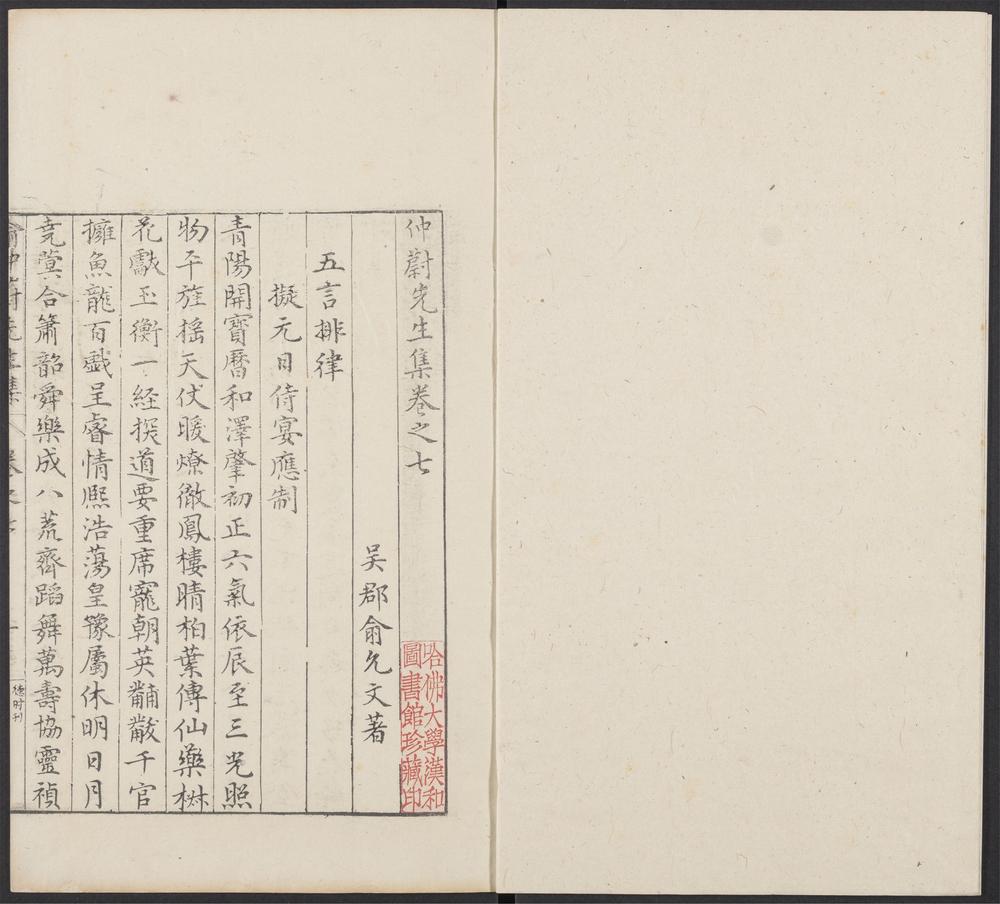 仲蔚先生集卷之七
吴郡俞允文著
五言排律
擬元日侍宴應制
青陽開寶曆和澤肇初正六氣依辰至三光照
物平旌摇天仗暖燎徹鳳樓晴柏葉傳仙藥椒
花獻玉衡一經探道要重席寵朝英黼黻千官
擁魚龍百戲呈睿情熙浩蕩皇豫屬休明日月
堯蓂合簫韶舜樂成八荒齊蹈舞萬壽協靈禎
俞仲蔚先生集 卷之七 一 德时刊
哈佛大學漢和
圖書館珍藏印